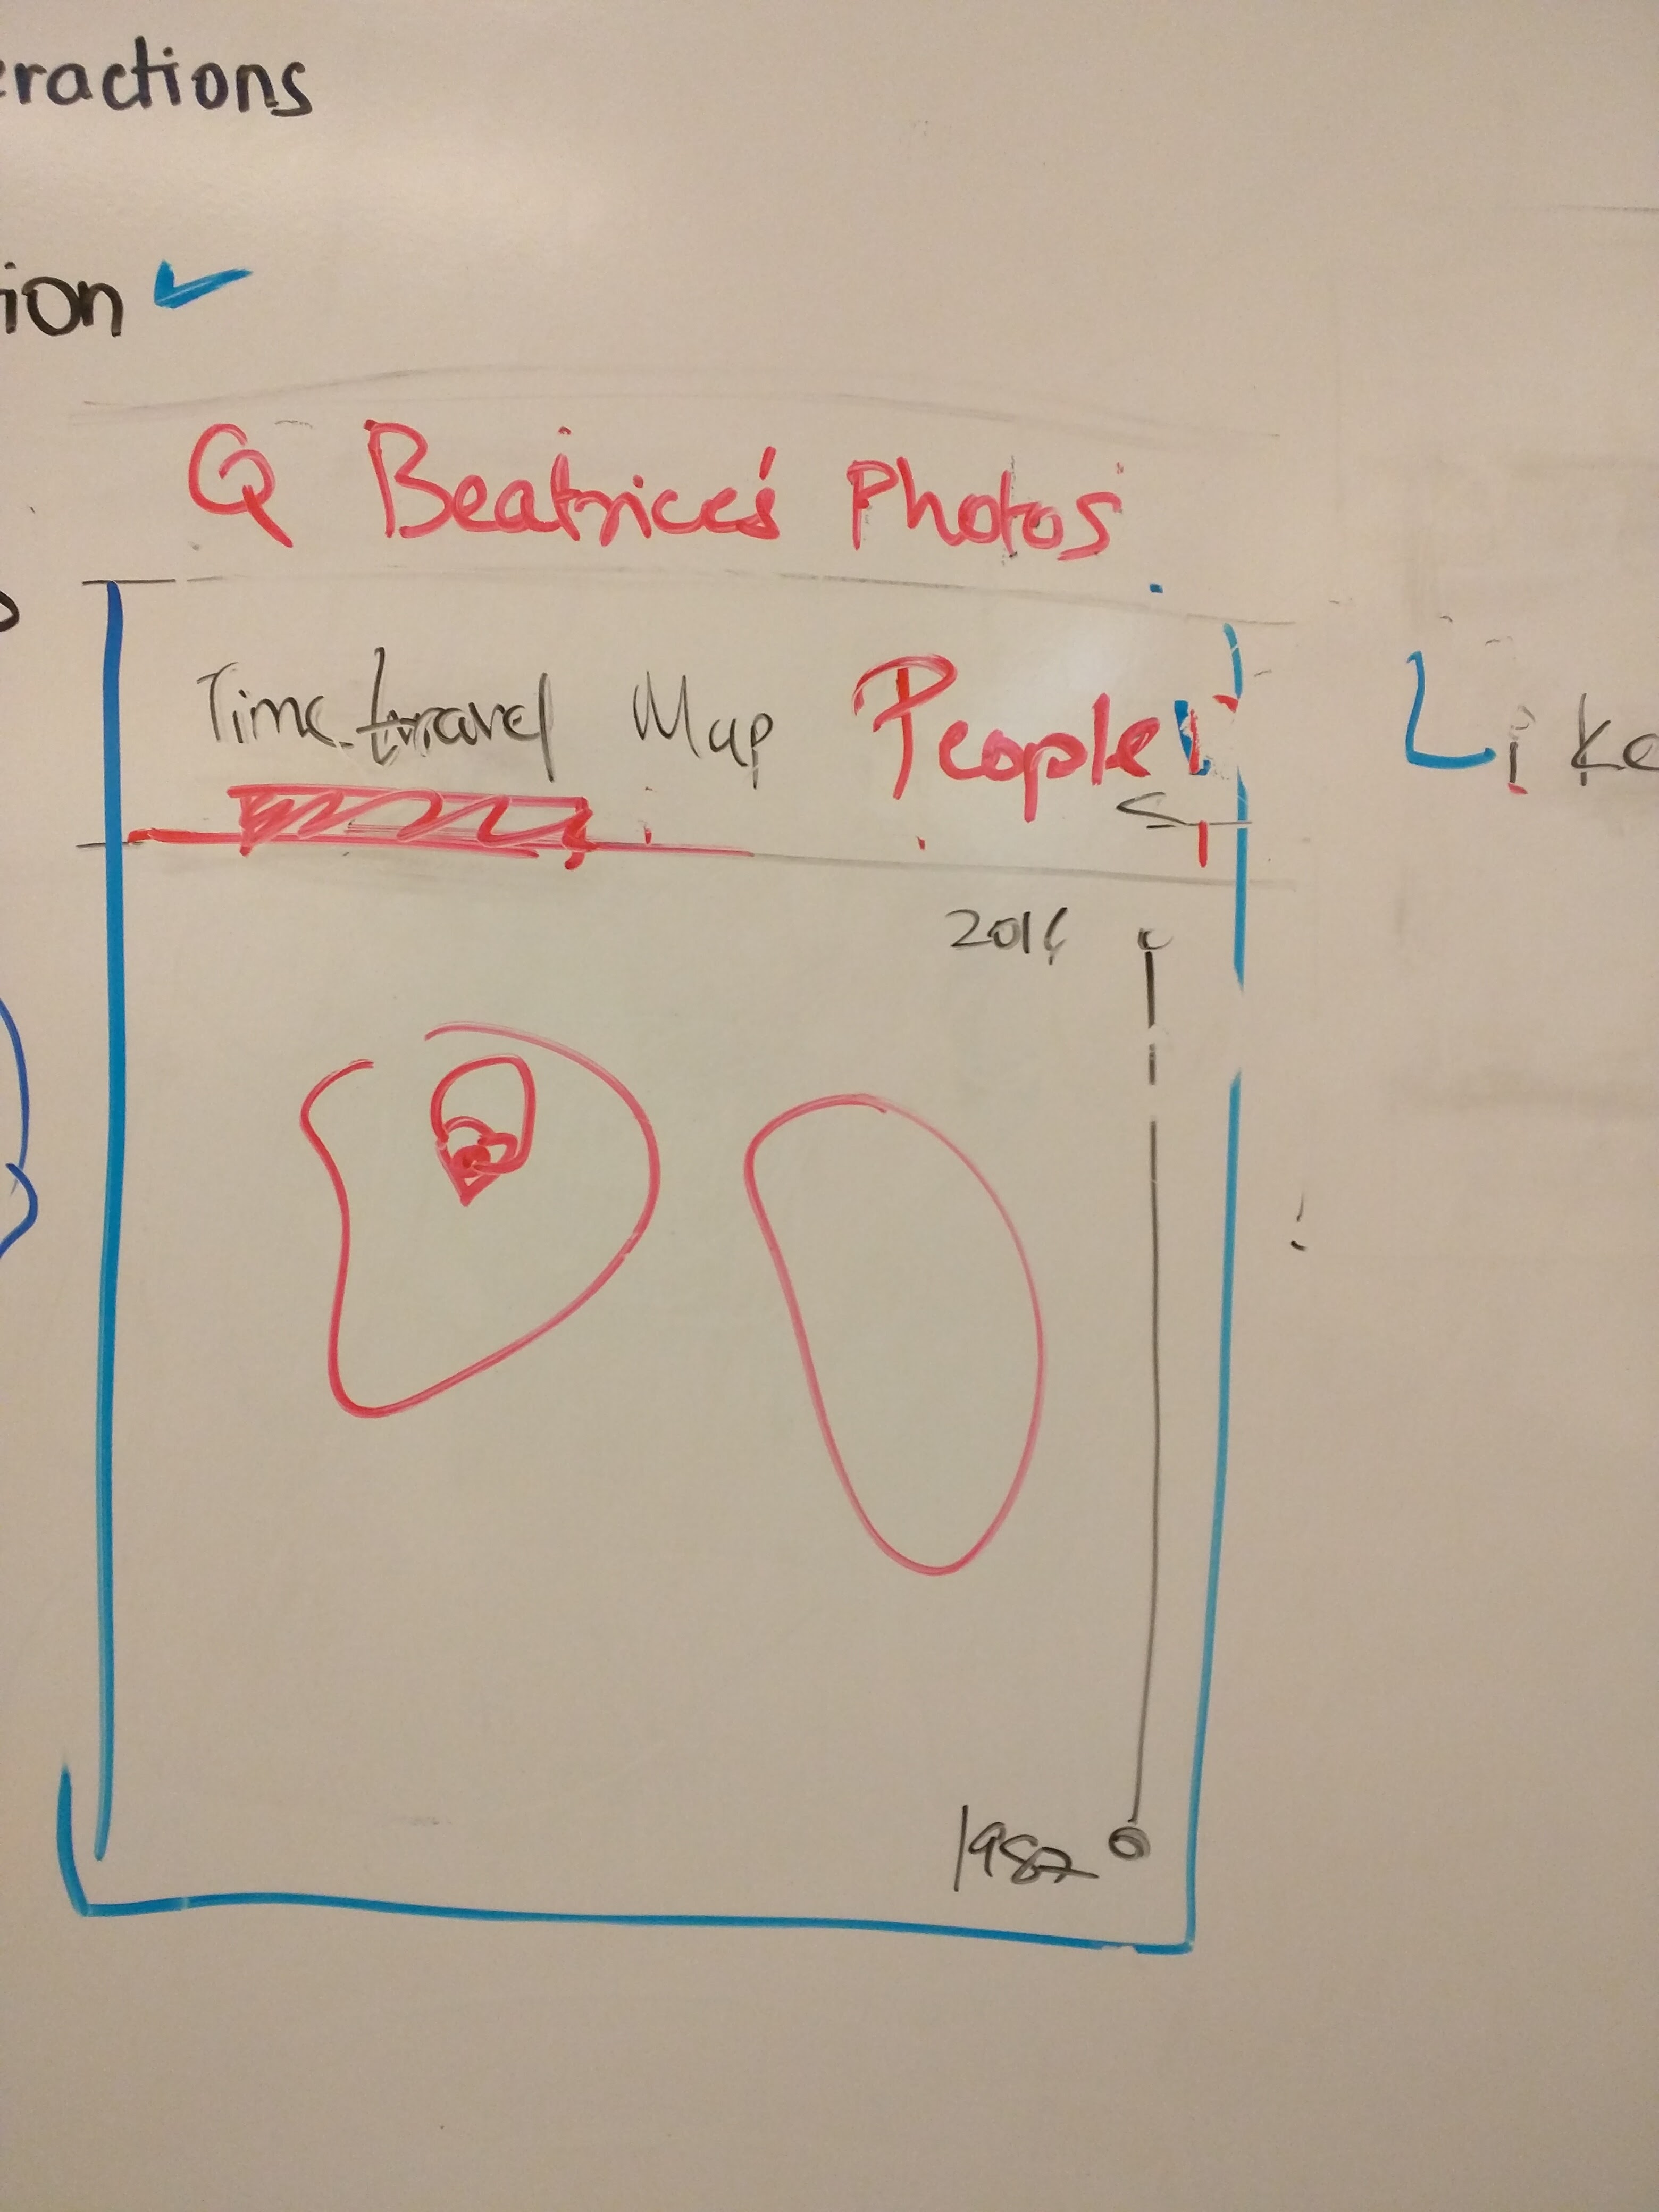 eractions
ion ✓
Q Beatrice's Photos
Time travel Map People
Like
2016
1982